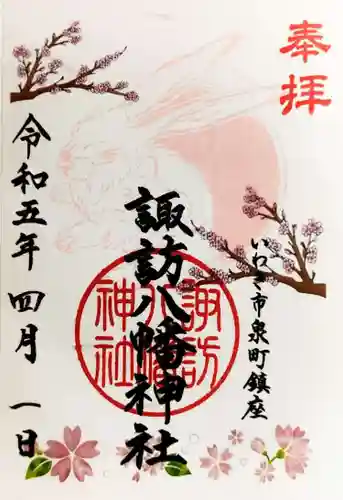 奉拝
いわき市泉町鎮座
諏訪八幡神社
諏訪八幡神社
令和五年 四月 一日